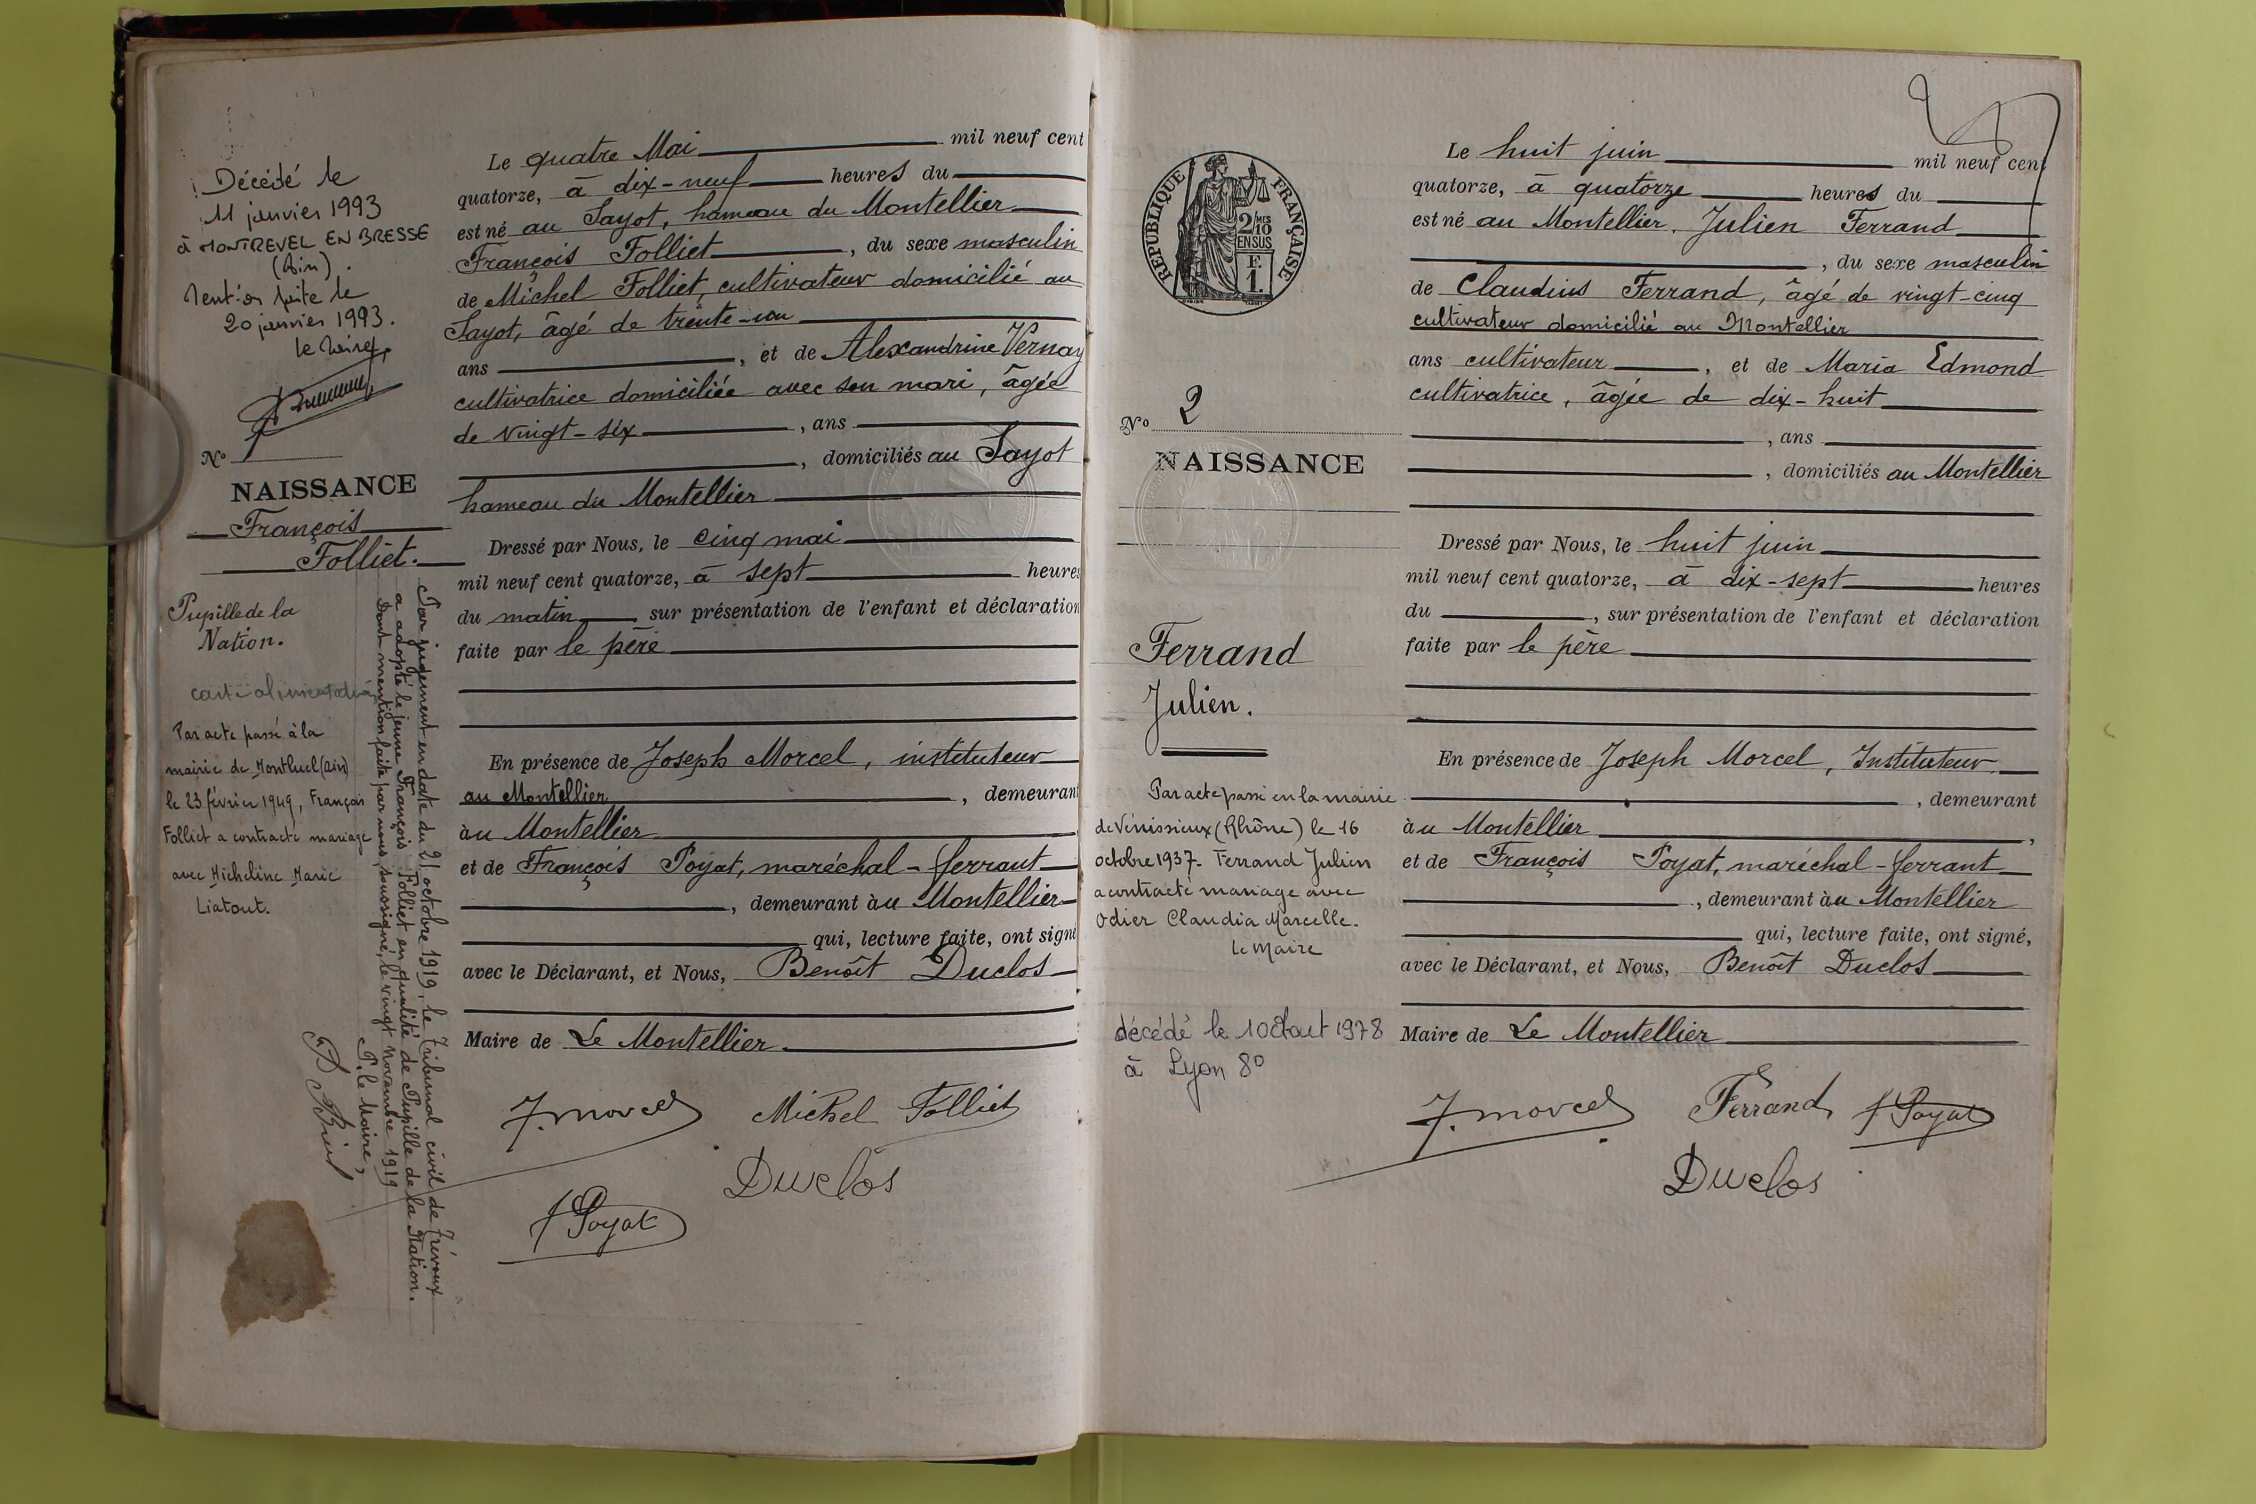 Décédé le
11 janvier 1993
à MONTREVEL EN BRESSE
(Ain).
Mention faite le
20 janvier 1993.
le Maire,
N°
NAISSANCE
François
Folliet.
Pupille de la
Nation.
carte alimentation
Par acte passé à la
mairie de Montluel (Ain)
le 23 février 1949, François
Folliet a contracté mariage
avec Micheline Marie
Liatout.
Par jugement en date du 21 octobre 1919, le tribunal civil de Trévoux
a adopté le jeune François Folliet en qualité de Pupille de la Nation.
Dont mention faite par nous, soussigné, le vingt Novembre 1919
P. le Maire,
Le quatre Mai mil neuf cent
quatorze, à dix-neuf heures du
est né au Sayot, hameau du Montellier
François Folliet, du sexe masculin
de Michel Folliet, cultivateur domicilié au
Sayot, âgé de trente-un
ans, et de Alexandrine Vernay
cultivatrice domiciliée avec son mari, âgée
de vingt-six, ans
, domiciliés au Sayot
hameau du Montellier
Dressé par Nous, le cinq mai
mil neuf cent quatorze, à sept heures
du matin sur présentation de l'enfant et déclaration
faite par le père
En présence de Joseph Morcel, instituteur
au Montellier, demeurant
àu Montellier
et de François Poyat, maréchal-ferrant
, demeurant àu Montellier
qui, lecture faite, ont signé
avec le Déclarant, et Nous, Benoît Duclos
Maire de Le Montellier.
J. Morcel Michel Folliet
Duclos
f Poyat
RÉPUBLIQUE FRANÇAISE
2/10 MES
EN SUS
F.
1.
N° 2
NAISSANCE
Ferrand
Julien.
Par acte passé en la mairie
de Vénissieux (Rhône) le 16
octobre 1937. Ferrand Julien
a contracté mariage avec
Odier Claudia Marcelle.
Le Maire
décédé le 10 Août 1978
à Lyon 8°
Le huit juin mil neuf cent
quatorze, à quatorze heures du
est né au Montellier, Julien Ferrand
, du sexe masculin
de Claudius Ferrand, âgé de vingt-cinq
cultivateur domicilié au Montellier
ans cultivateur, et de Maria Edmond
cultivatrice, âgée de dix-huit
, ans
, domiciliés au Montellier
Dressé par Nous, le huit juin
mil neuf cent quatorze, à dix-sept heures
du, sur présentation de l'enfant et déclaration
faite par le père
En présence de Joseph Morcel, Instituteur
, demeurant
àu Montellier,
et de François Poyat, maréchal-ferrant
, demeurant àu Montellier
qui, lecture faite, ont signé,
avec le Déclarant, et Nous, Benoît Duclos
Maire de Le Montellier
J. Morcel Ferrand f Poyat
Duclos